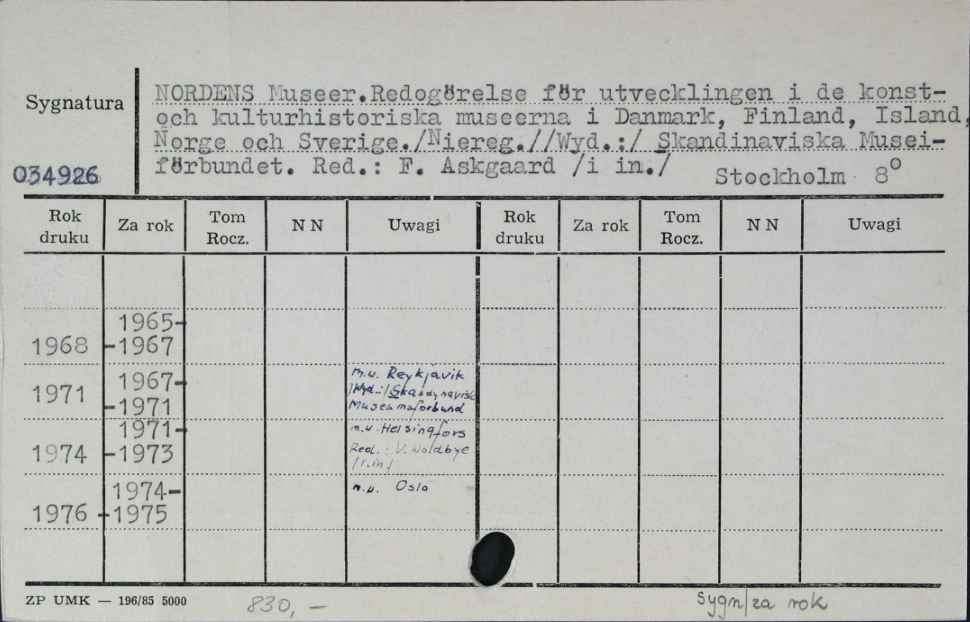 Sygnatura
034926
NORDENS Museer.Redogörelse för utvecklingen i de konst-
och kulturhistoriska museerna i Danmark, Finland, Island,
Norge och Sverige./Niereg.//Wyd.:/ Skandinaviska Musei-
förbundet. Red.: F. Askgaard /i in./ Stockholm 8°
Rok druku Za rok Tom Rocz. N N Uwagi Rok druku Za rok Tom Rocz. N N Uwagi
1965-
1968 -1967
m.w. Reykjavik
1967- /Wyd.:/Skandynavisk
1971 -1971 Museumsforbund
1971- m.w. Helsingfors
1974 -1973 Red.: V. Woldbye
/i in/
1974- m.w. Oslo
1976 -1975
ZP UMK — 196/85 5000
830,-
sygn/za rok